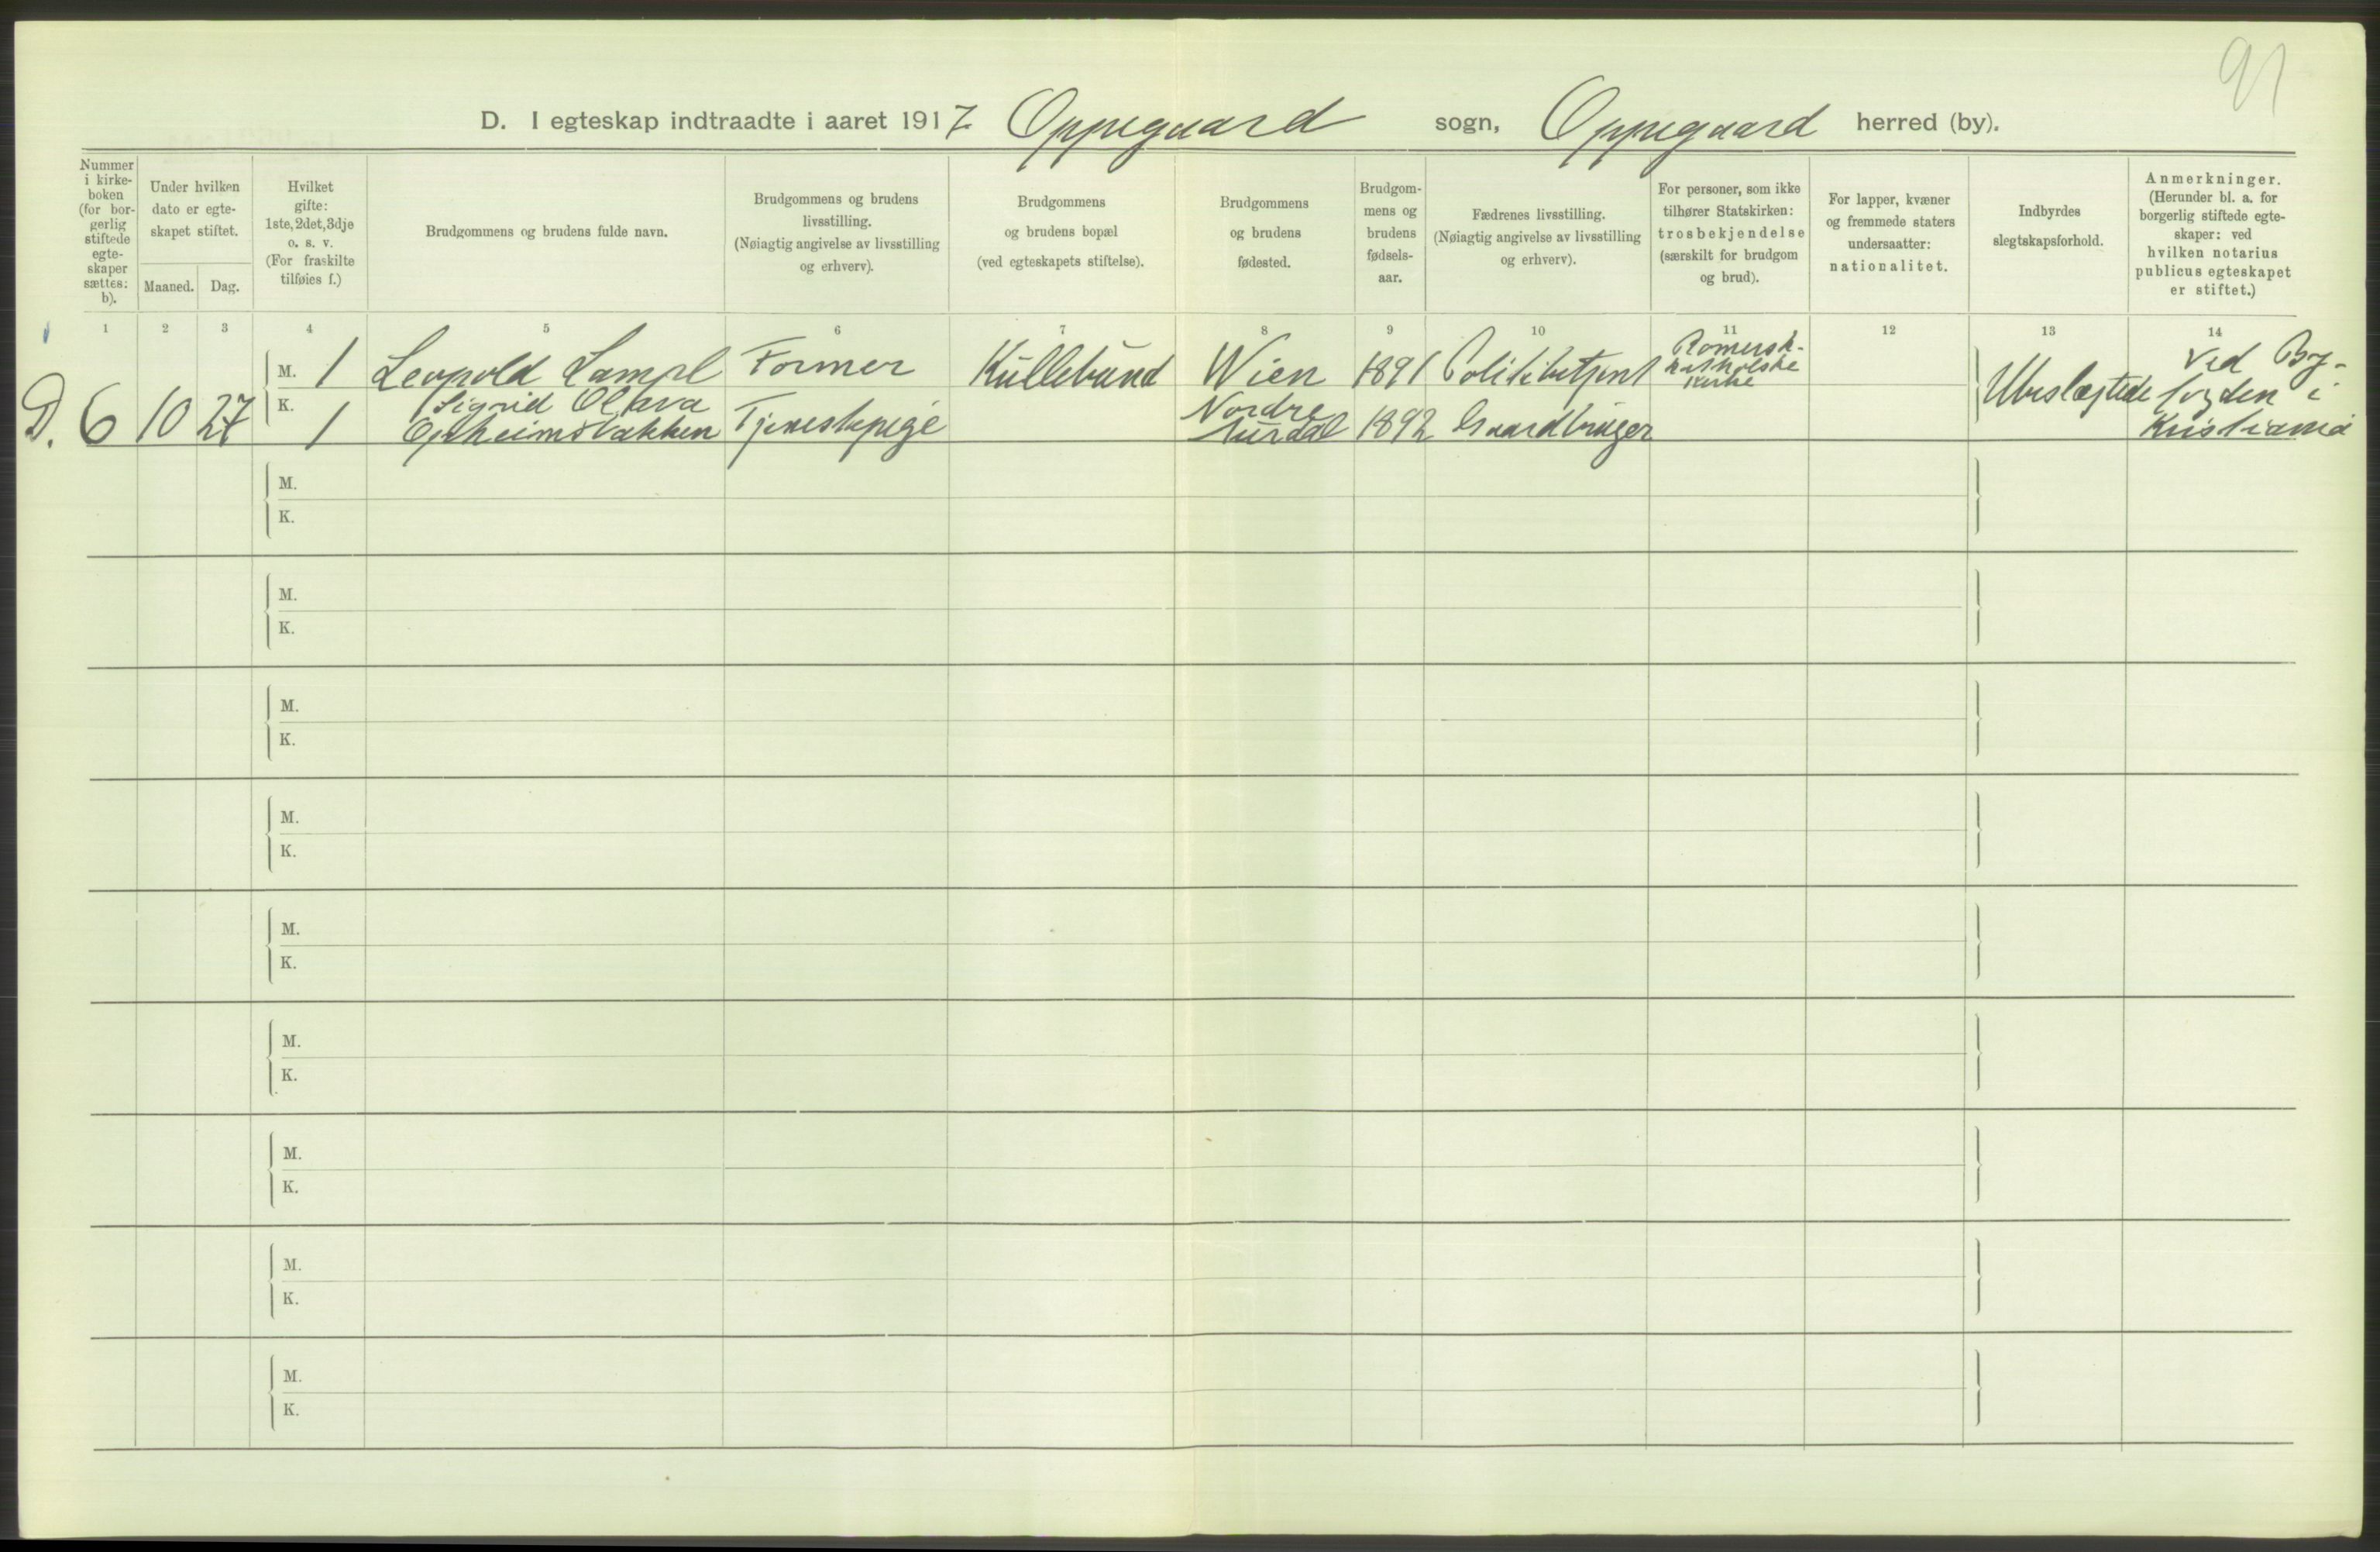 91
D. I egteskap indtraadte i aaret 1917 Oppegaard sogn, Oppegaard herred (by).
Nummer
i kirke-
boken
(for bor-
gerlig
stiftede
egte-
skaper
sættes:
b).
Under hvilken
dato er egte-
skapet stiftet.
Maaned.
Dag.
Hvilket
gifte:
1ste, 2det, 3dje
o. s. v.
(For fraskilte
tilføies f.)
Brudgommens og brudens fulde navn.
Brudgommens og brudens
livsstilling.
(Nøiagtig angivelse av livsstilling
og erhverv).
Brudgommens
og brudens bopæl
(ved egteskapets stiftelse).
Brudgommens
og brudens
fødested.
Brudgom-
mens og
brudens
fødsels-
aar.
Fædrenes livsstilling.
(Nøiagtig angivelse av livsstilling
og erhverv).
For personer, som ikke
tilhører Statskirken:
trosbekjendelse
(særskilt for brudgom
og brud).
For lapper, kvæner
og fremmede staters
undersaatter:
nationalitet.
Indbyrdes
slegtskapsforhold.
Anmerkninger.
(Herunder bl. a. for
borgerlig stiftede egte-
skaper: ved
hvilken notarius
publicus egteskapet
er stiftet.)
1 2 3 4 5 6 7 8 9 10 11 12 13 14
D. 6 10 27
M. 1 Leopold Lampl Former Kullebund Wien 1891 Politibetjent
Romersk-
katholske
kirke
K. 1 Sigrid Olava
Opheimsbakken Tjenestepige
Nordre
Aurdal 1892 Gaardbruger
Ubeslægtede
Ved By-
fogden i
Kristiania
M.
K.
M.
K.
M.
K.
M.
K.
M.
K.
M.
K.
M.
K.
M.
K.
M.
K.